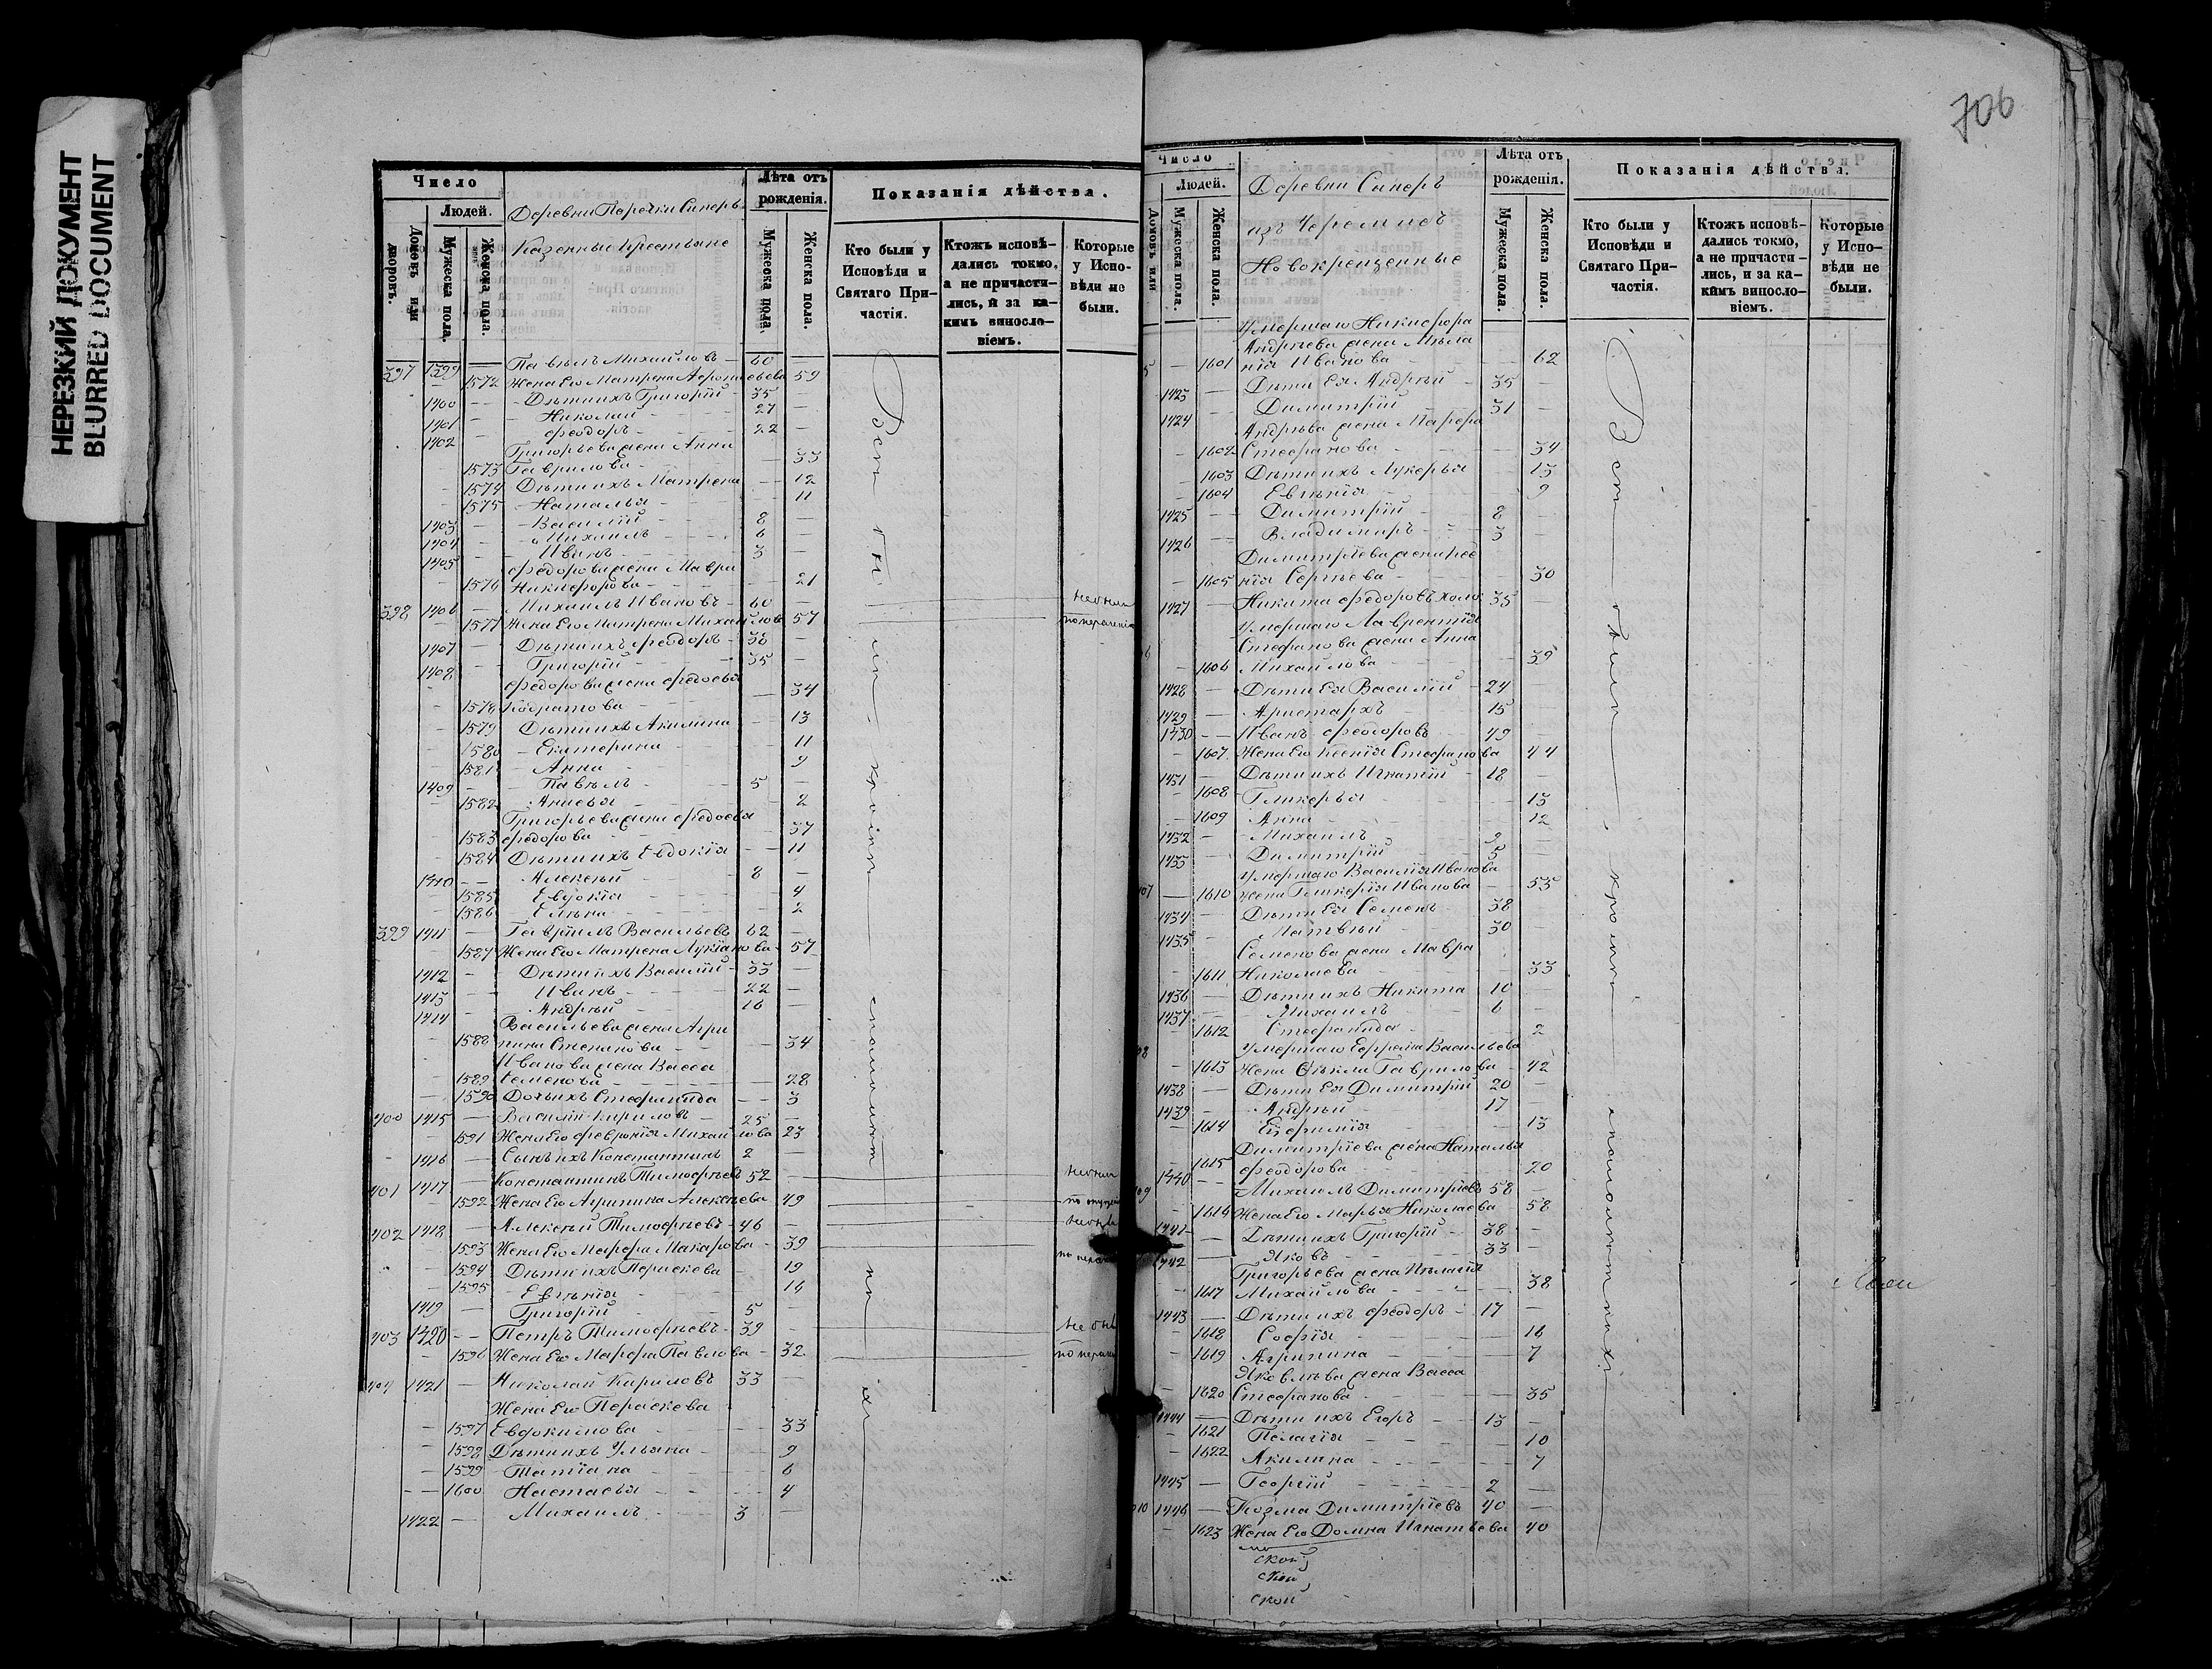 НЕРЕЗКИЙ ДОКУМЕНТ
BLURRED DOCUMENT
Число
Людей.
Домовъ или дворовъ.
Мужеска пола.
Женска пола.
Деревни Поречки Сиперъ
Казенные Крестьяне
Лѣта отъ рожденія.
Мужеска пола.
Женска пола.
Показанія дѣйства.
Кто были у Исповѣди и Святаго Причастія.
Ктожъ исповѣдались токмо, а не причастились, и за какимъ винословіемъ.
Которые у Исповѣди не были.
397 1399 — Павелъ Михайловъ — 60
1572 Жена Его Матрена 59
1400 — Дѣти ихъ Григорій — 35 —
1401 — Николай — 27 —
1402 — Феодоръ — 22 —
Григорьева жена Анна
1573 Гаврилова — 33
1574 Дѣти ихъ Матрена — 12
1575 Наталья — 11
1403 — Василій — 8 —
1404 — Михаилъ — 6 —
1405 — Иванъ — 3 —
Федорова жена Мавра
1576 Никифорова — 21
398 1406 — Михаилъ Ивановъ — 60 —
1577 Жена Его Матрена Михайлова 57
1407 — Дѣти ихъ Феодоръ — 38 —
1408 — Григорій — 35 —
Федорова жена Федосья
1578 Кодратова — 34
1579 Дѣти ихъ Акилина — 13
1580 — Екатерина — 11
1581 — Анна — 9
1409 — Павелъ — 5 —
1582 Анисья — 2
Григорьева жена Федосья
1583 Федорова — 37
1584 Дѣти ихъ Евдокія — 11
1410 — Алексѣй — 8 —
1585 Евдокія — 4
1586 Елена — 2
399 1411 — Гавріилъ Васильевъ 62 —
1587 Жена Его Матрена Лукіанова — 57
1412 — Дѣти ихъ Василій — 33 —
1413 — Иванъ — 22 —
1414 — Андрей — 16 —
Васильева жена Агри
1588 пина Степанова — 34
Иванова жена Васса
1589 Семенова — 28
1590 Дочь ихъ Стефанида — 3
400 1415 — Василій Кириловъ — 25 —
1591 Жена Его Февронія Михайлова 23
1416 — Сынъ ихъ Константинъ 2 —
401 1417 — Константинъ Тимофѣевъ 52 —
1592 Жена Его Агрипина Алексѣева 49
402 1418 — Алексѣй Тимофѣевъ — 46 —
1593 Жена Его Марфа Макарова — 39
1594 Дѣти ихъ Параскева — 19
1595 — Евгенія — 16
1419 — Григорій — 5 —
403 1420 — Петръ Тимофѣевъ — 39 —
1596 Жена Его Марфа Павлова — 32
404 1421 — Николай Кириловъ 33 —
Жена Его Параскева
1597 Евдокимова — 33
1598 Дѣти ихъ Ульяна — 9
1599 Татіана — 6
1600 Настасья — 4
1422 — Михаилъ — 3 —
Всѣ были — кромѣ — отмѣченныхъ
не был
не был
не был
706
Число
Людей.
Домовъ или
Мужеска пола.
Женска пола.
Деревни Сиперъ
изъ Черемисъ
Новокрещенные
Лѣта отъ рожденія.
Мужеска пола.
Женска пола.
Показанія дѣйства.
Кто были у Исповѣди и Святаго Причастія.
Ктожъ исповѣдались токмо, а не причастились, и за какимъ винословіемъ.
Которые у Исповѣди не были.
Умершаго Никифора
Андрѣева жена Мела
1601 нія Иванова — 62
1423 — Дѣти Ея Андрей — 35 —
1424 — Димитрій — 31 —
Андрѣва жена Марфа
1602 Стефанова — 34
1603 Дѣти ихъ Лукерья — 13
1604 Евгенія — 9
1425 — Димитрій — 8
1426 — Владимиръ — 3 —
Димитріева жена Ксе
1605 нія Сергѣева — 30
1427 — Никита Федоровъ холо 35
Умершаго Лаврентія
Стефанова жена Анна
1606 Михайлова — 39
1428 — Дѣти Ея Василій — 24
1429 — Аристархъ — 15
1430 — Иванъ Феодоровъ — 49
1607 Жена Его Ксенія Стефанова 44
1431 — Дѣти ихъ Игнатій — 18 —
1608 Гликерья — 15
1609 Анна — 12
1432 — Михаилъ — 9 —
1433 — Димитрій — 5 —
Умершаго Василія Иванова
1610 жена Гликерія Иванова — 55
1434 — Дѣти Ея Семенъ — 38
1435 — Матвѣй — 30 —
Семенова жена Мавра
1611 Николаева — 33
1436 — Дѣти ихъ Никита — 10 —
1437 — Михаилъ — 6 —
1612 Стефанида — 2
Умершаго Ефрема Васильева
1613 Жена Фекла Гаврилова — 42
1438 — Дѣти Ея Димитрій 20 —
1439 — Андрей — 17 —
1614 Ефимія — 13
Димитріева жена Наталья
1615 Феодорова — 20
1440 — Михаилъ Димитріевъ 58 —
1616 Жена Его Марья Николаева 58
1441 — Дѣти ихъ Григорій — 38 —
1442 — Яковъ — 33 —
Григорьева жена Пелагія
1617 Михайлова — 38
1443 — Дѣти ихъ Феодоръ — 17 —
1618 Софія — 16
1619 Агрипина — 7
Яковлева жена Васса
1620 Стефанова — 35
1444 — Дѣти ихъ Егоръ — 13 —
1621 Пелагія — 10
1622 Акилина — 7
1445 — Георгій — 2 —
1446 — Козма Димитріевъ 40 —
1623 Жена Его Домна Игнатьева 40
ской
ской
ской
Всѣ — были — кромѣ — отмѣченныхъ